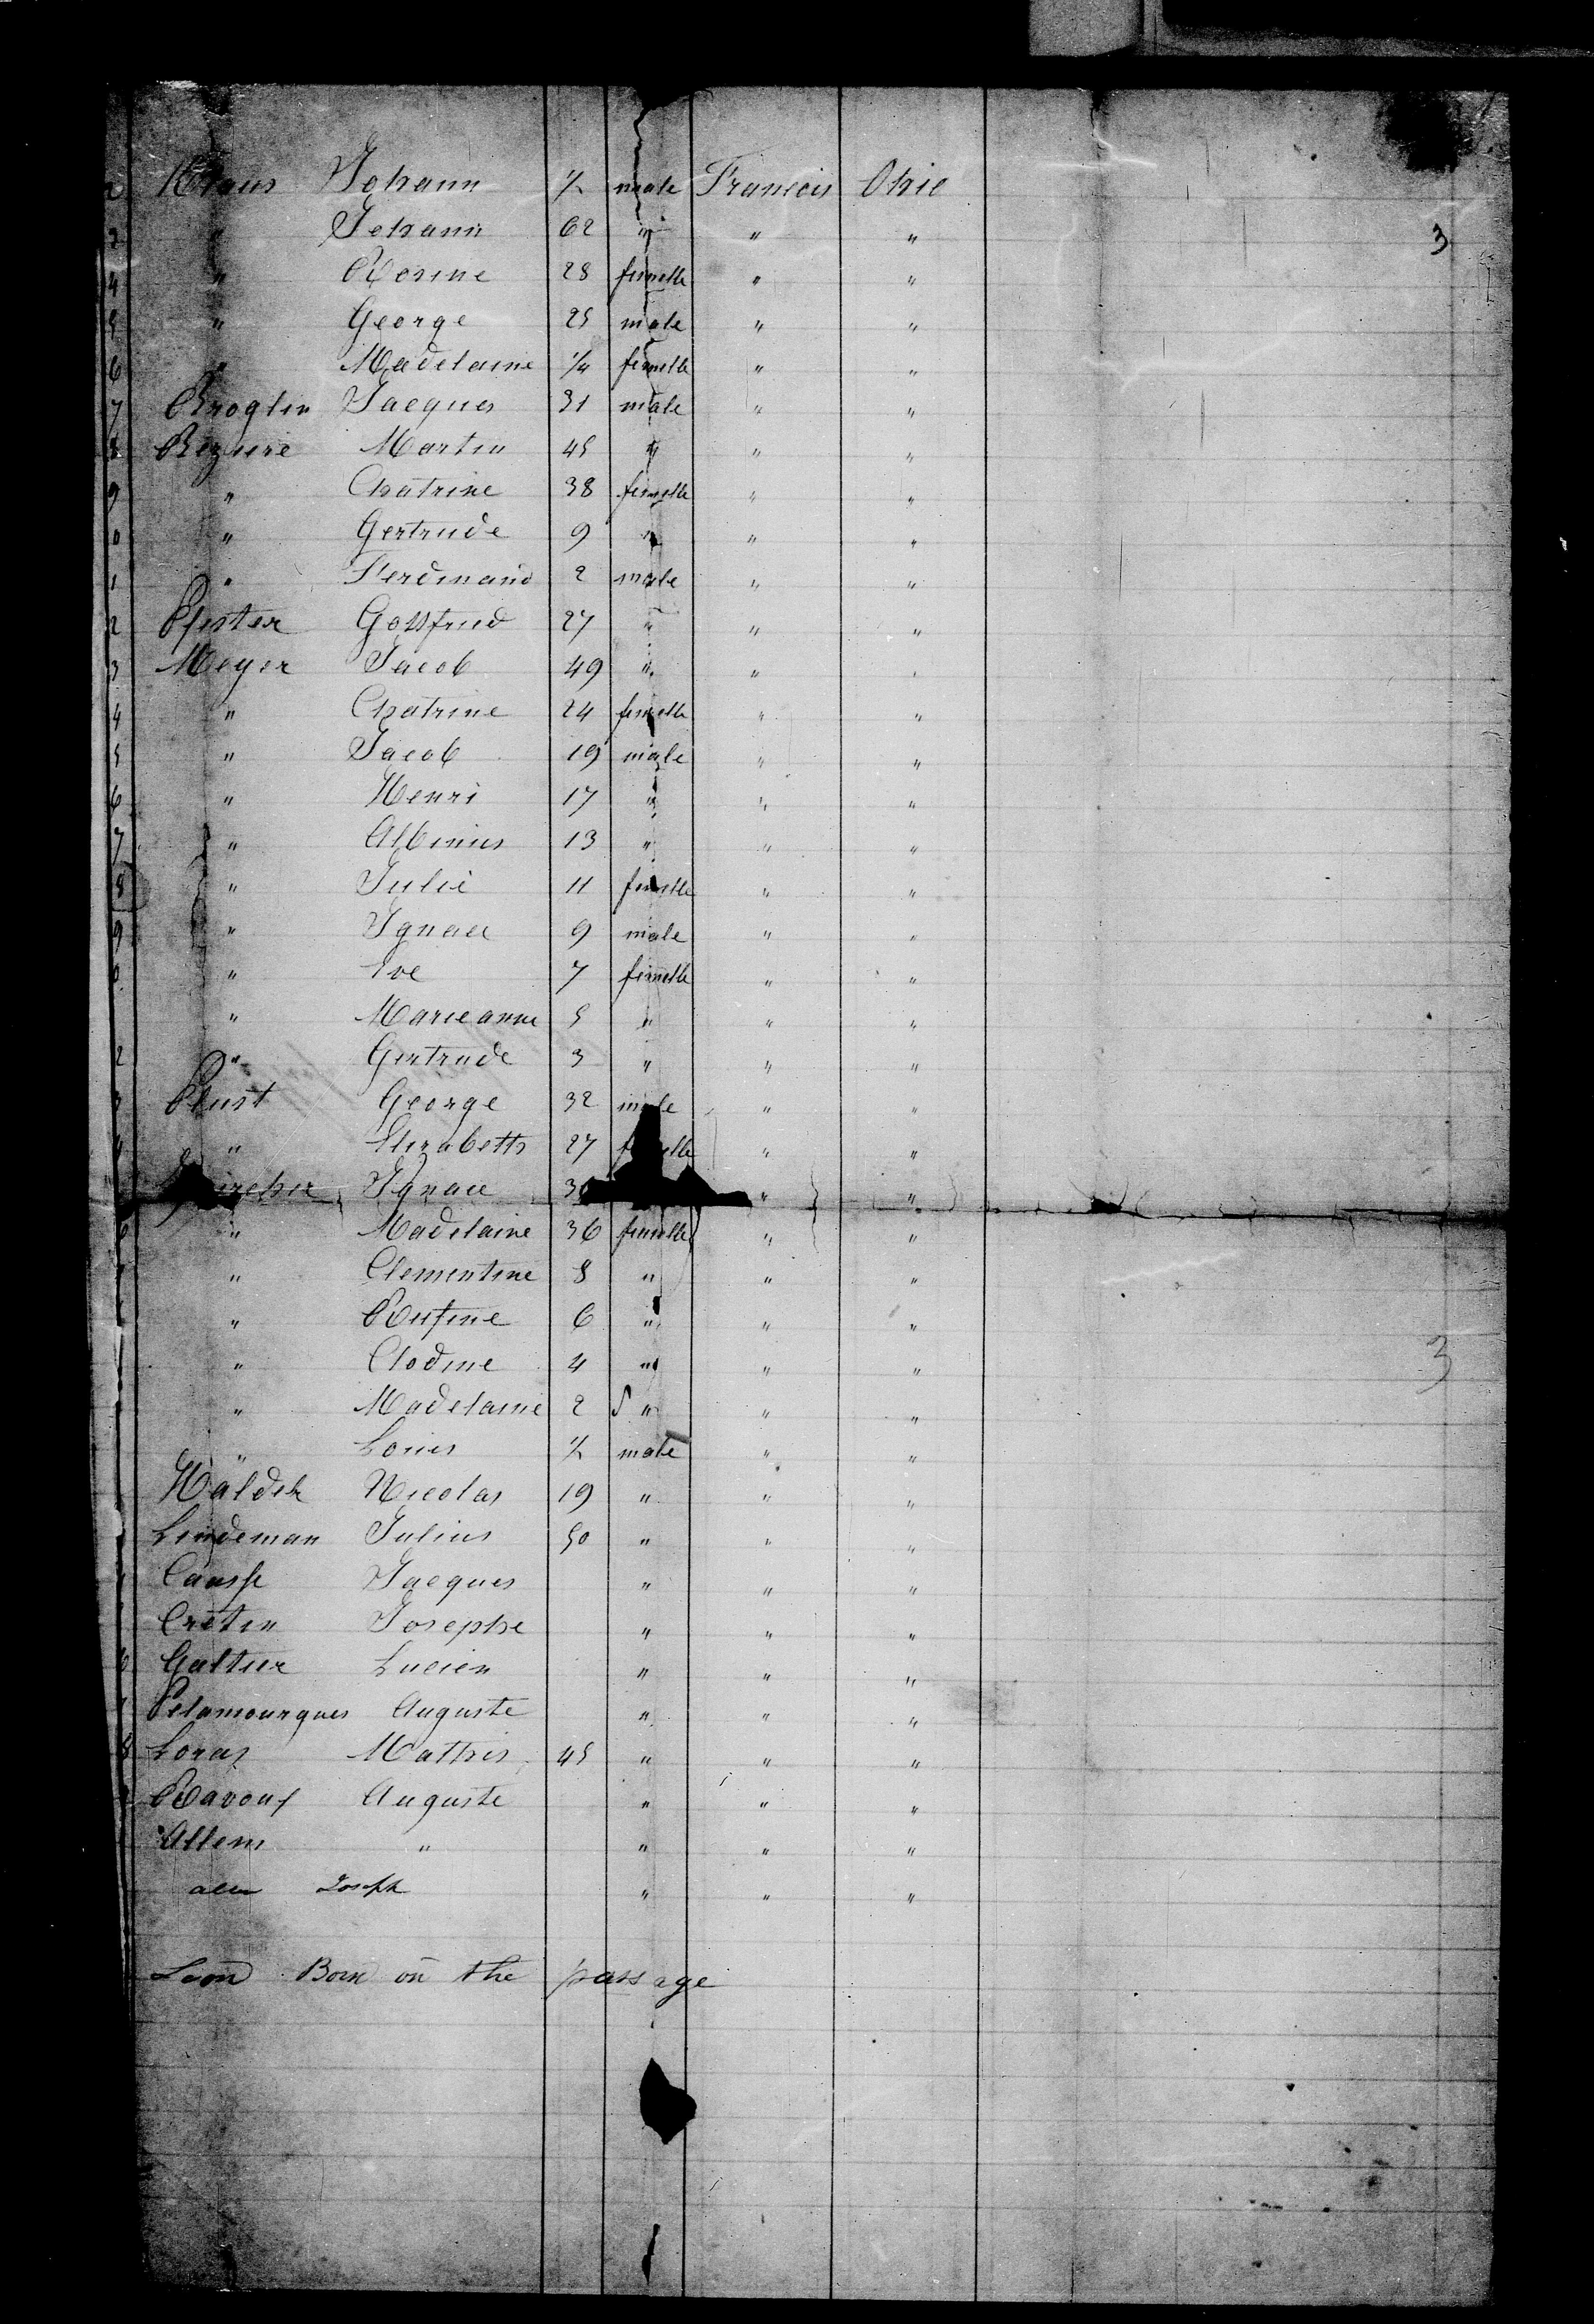 2 Kraus Johann ½ male Francois Ohio
3 " Johann 62 " " " 3
4 " Rosine 28 femelle " "
5 " George 25 male " "
6 " Madelaine ¼ femelle " "
7 Broglin Jacques 31 male " "
8 Beziere Martin 45 " " "
9 " Chatrine 38 femelle " "
0 " Gertrude 9 " " "
1 " Ferdinand 2 male " "
2 Pfister Gottfried 27 " " "
3 Meyer Jacob 49 " " "
4 " Chatrine 24 femelle " "
5 " Jacob 19 male " "
6 " Henri 17 " " "
7 " Albinus 13 " " "
8 " Julie 11 femelle " "
9 " Ignace 9 male " "
0 " Eve 7 femelle " "
" Marieanne 5 " " "
2 " Gertrude 3 " " "
3 Plust George 32 male " "
4 " Elizabeth 27 femelle " "
Ignace " "
6 " Madelaine 36 femelle " "
" Clementine 8 " " "
" Rufine 6 " " "
" Clodine 4 " " " 3
" Madelaine 2 " " "
" Louis ½ male " "
Nicolas 19 " " "
Lindeman Julius 50 " " "
Causse Jacques " " "
Cretin Josephe " " "
6 Galtier Lucien " " "
Pelamourgues Auguste " " "
8 Loras Mathis 45 " " "
Ravoux Auguste " " "
Allem " " " "
Joseph " " "
Born on the passage